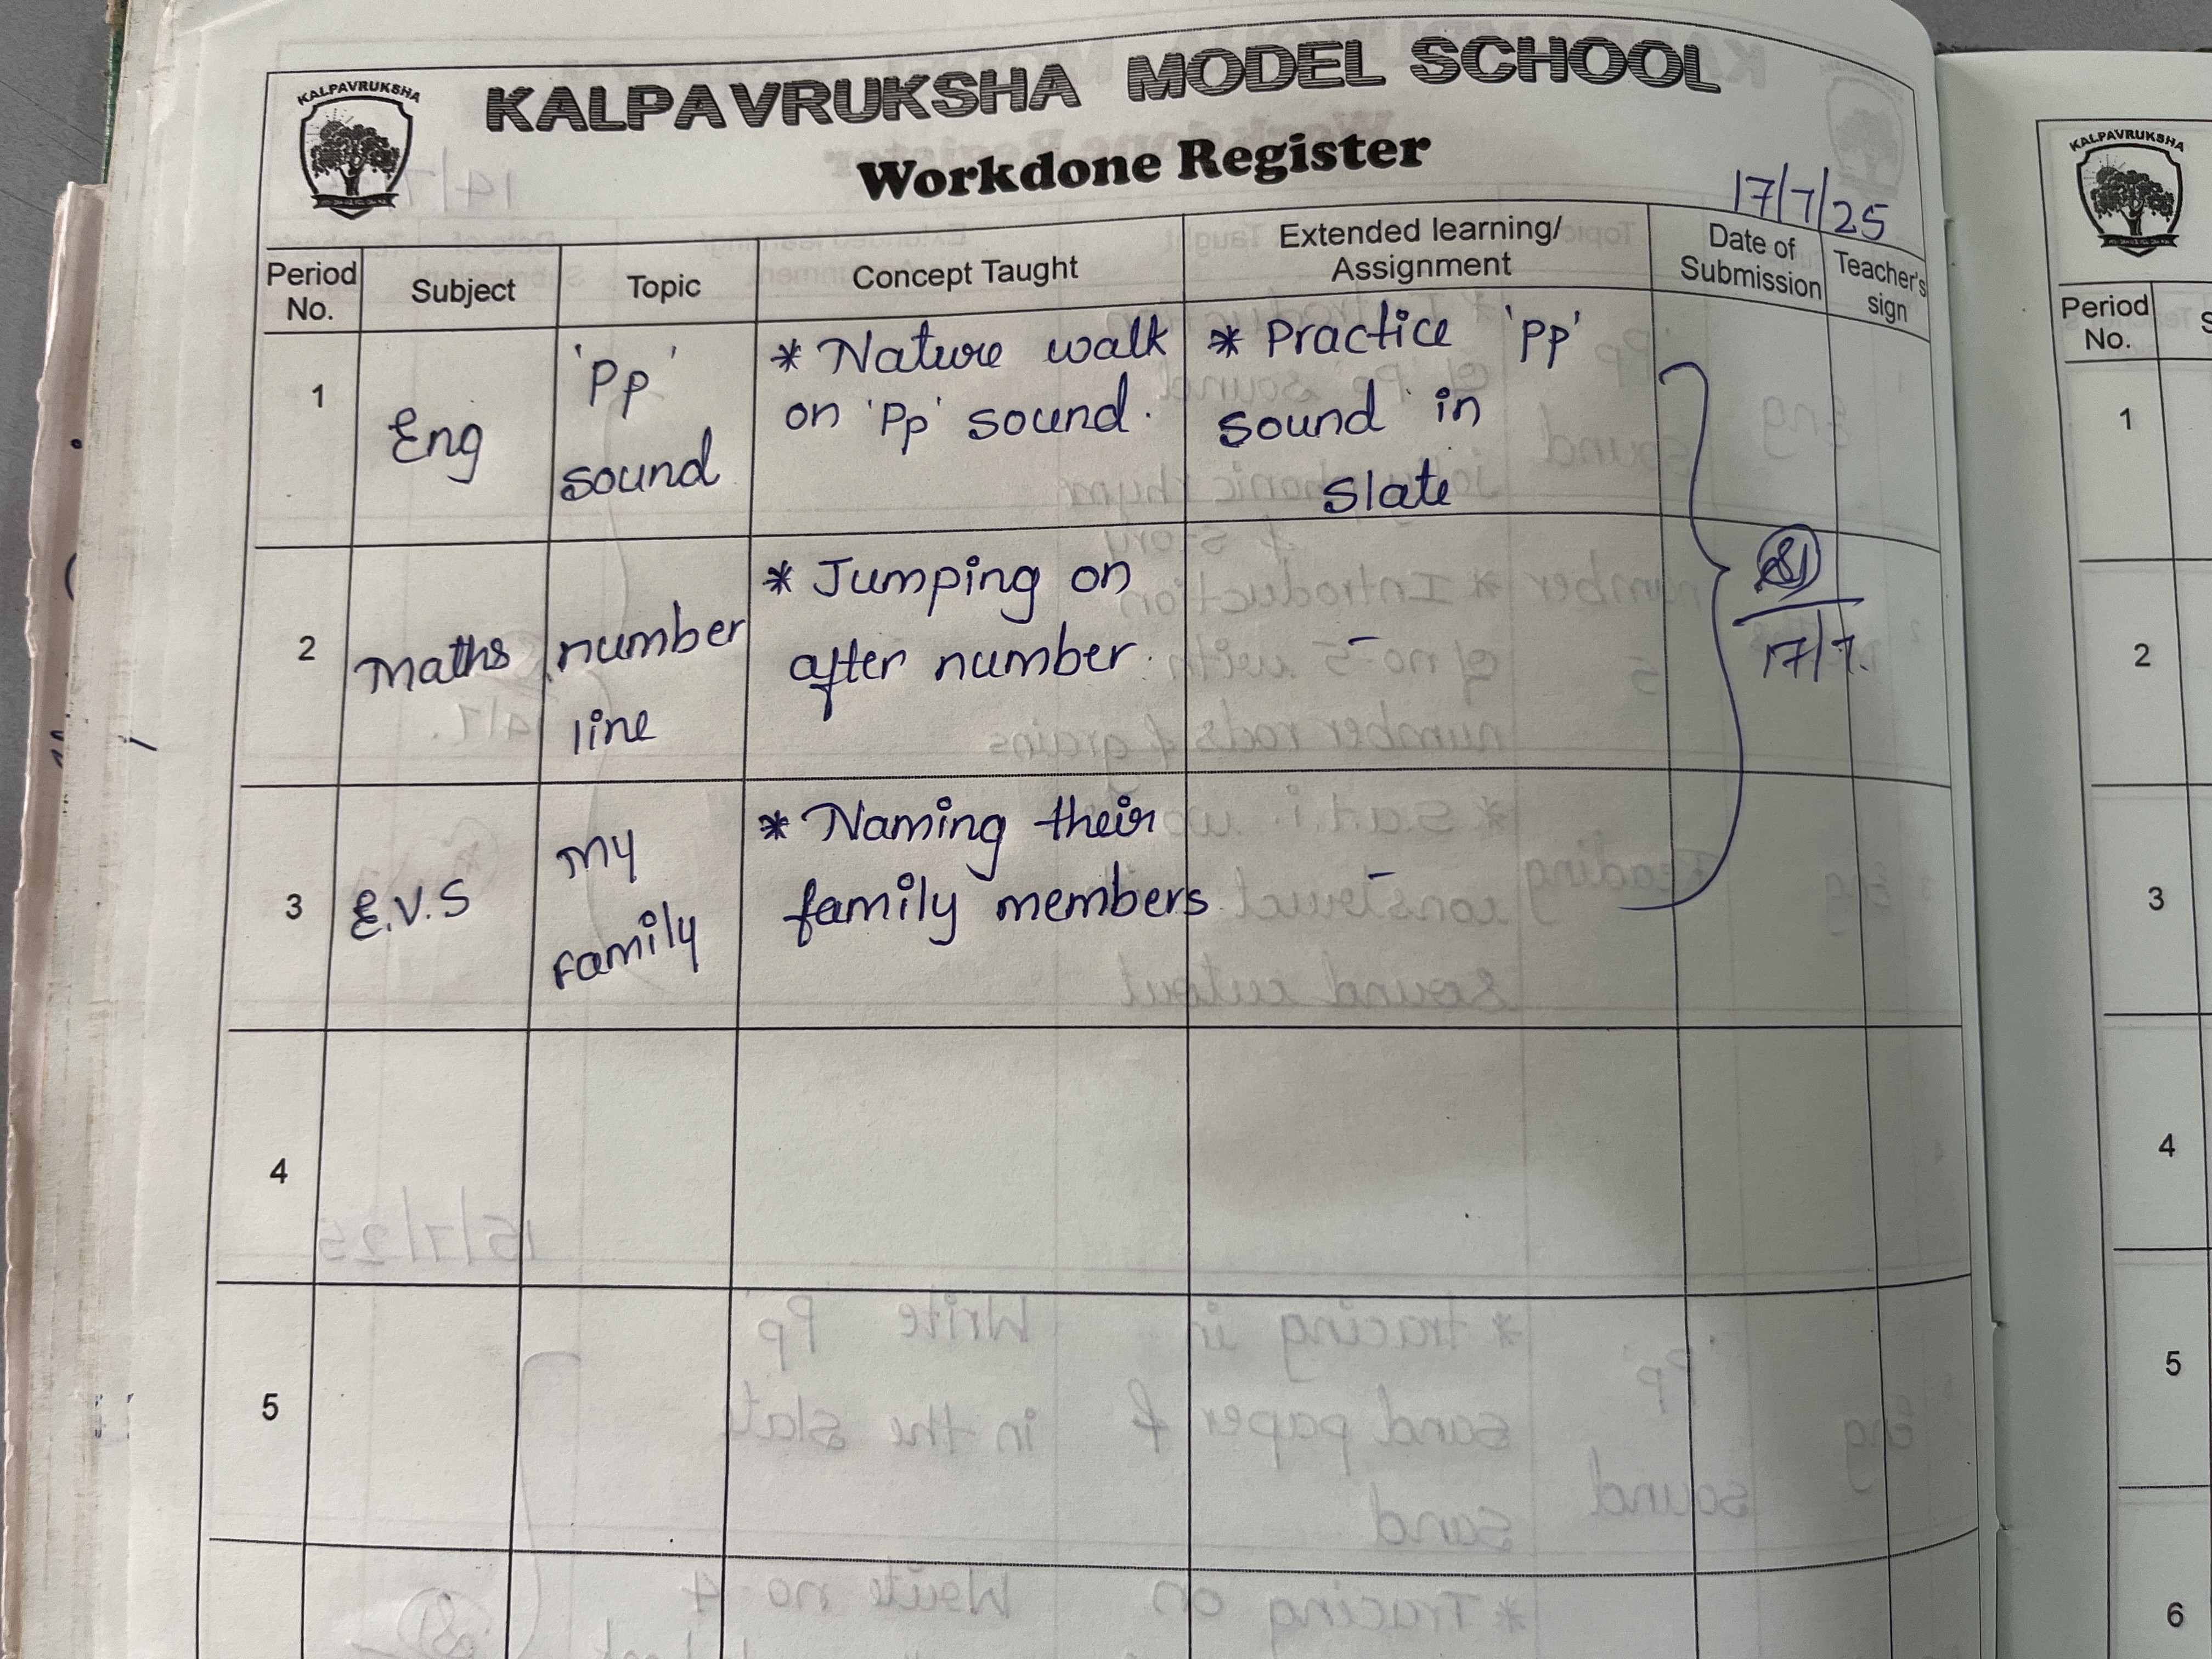 KALPAVRUKSHA
KALPAVRUKSHA MODEL SCHOOL
Workdone Register
17/7/25
Period No.
Subject
Topic
Concept Taught
Extended learning/
Assignment
Date of
Submission
Teacher's
sign
1
Eng
'Pp'
sound
* Nature walk
on 'Pp' sound.
* Practice 'Pp'
sound in
slate
2
Maths
number
line
* Jumping on
after number.
-
3
E.V.S
My
family
* Naming their
family members
-
17/7.
4
5
KALPAVRUKSHA
Period
No.
1
2
3
4
5
6